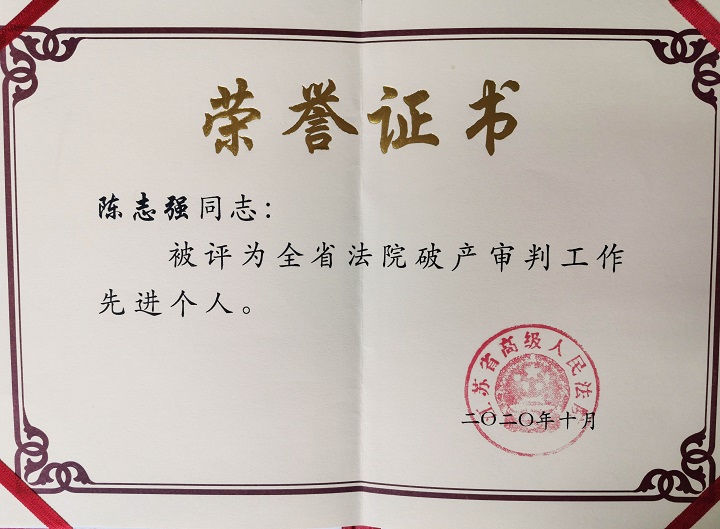 荣誉证书
陈志强同志：
被评为全省法院破产审判工作
先进个人。
江苏省高级人民法院
二〇二〇年十月